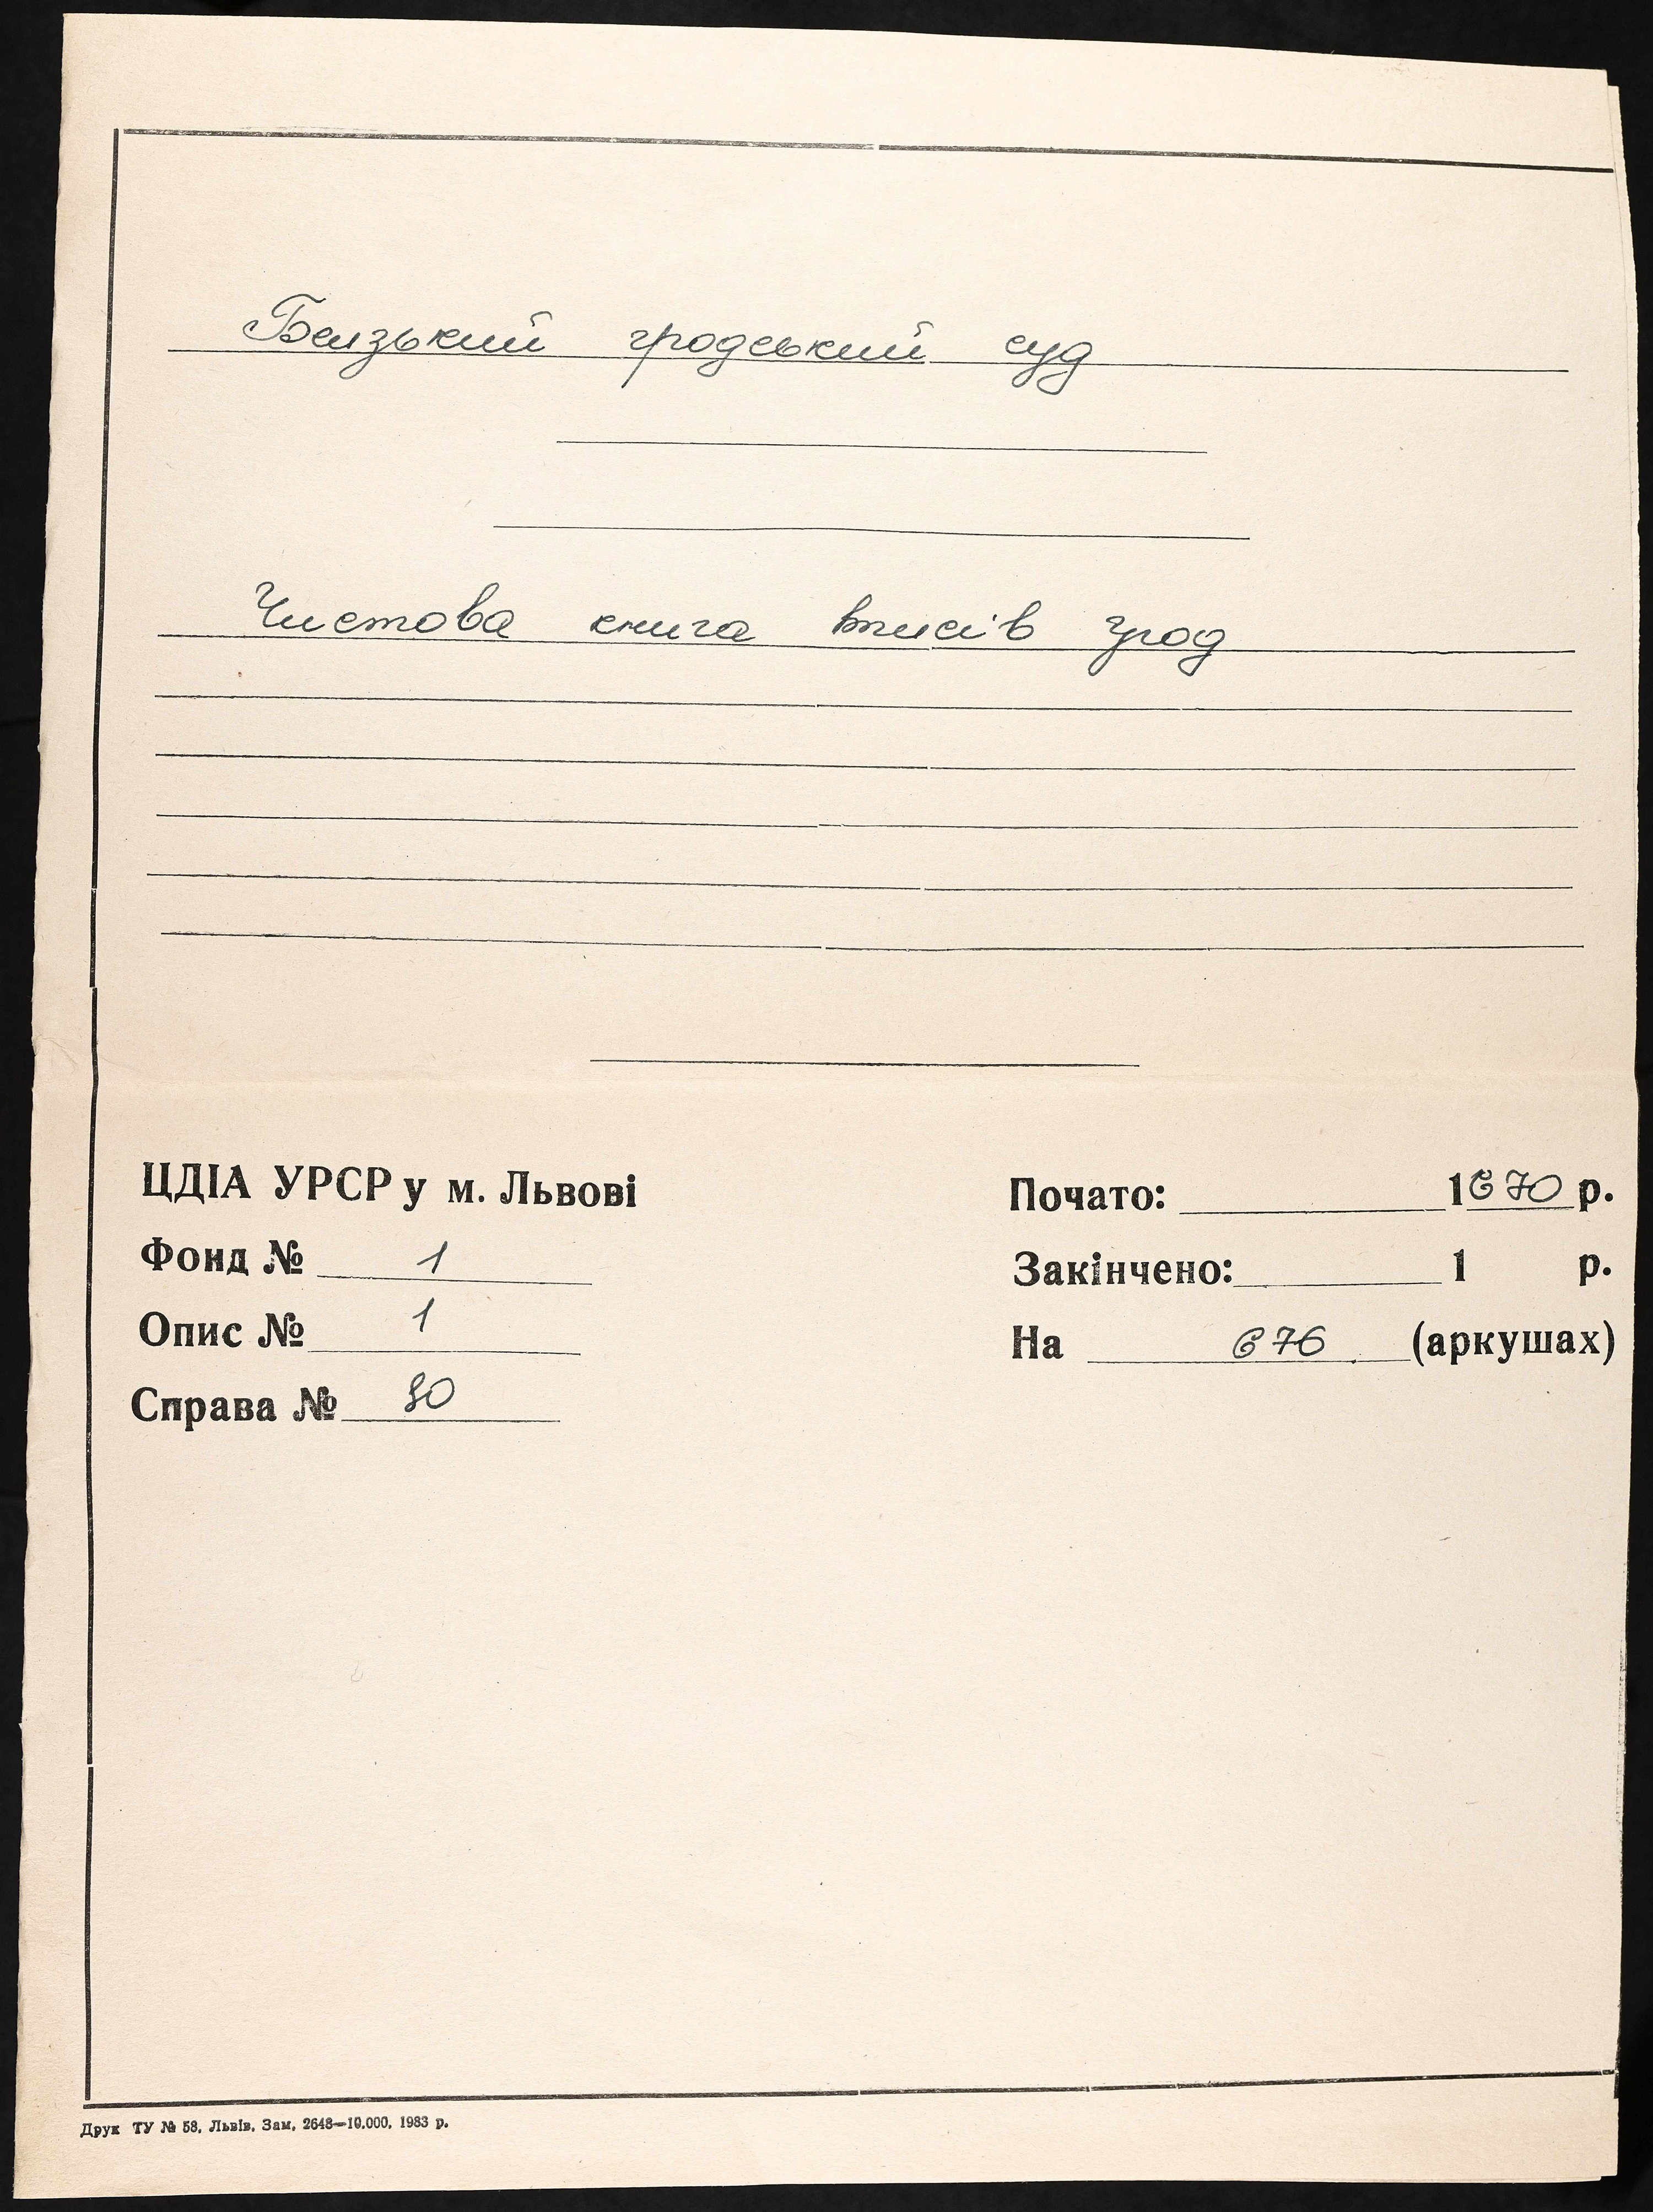 Белзький гродський суд
Чистова книга вписів угод
ЦДІА УРСР у м. Львові
Фонд № 1
Опис № 1
Справа №
Почато: 1670 р.
Закінчено: 1 р.
На 676 (аркушах)
Друк ТУ № 58, Львів, Зам. 2648—10.000, 1983 р.